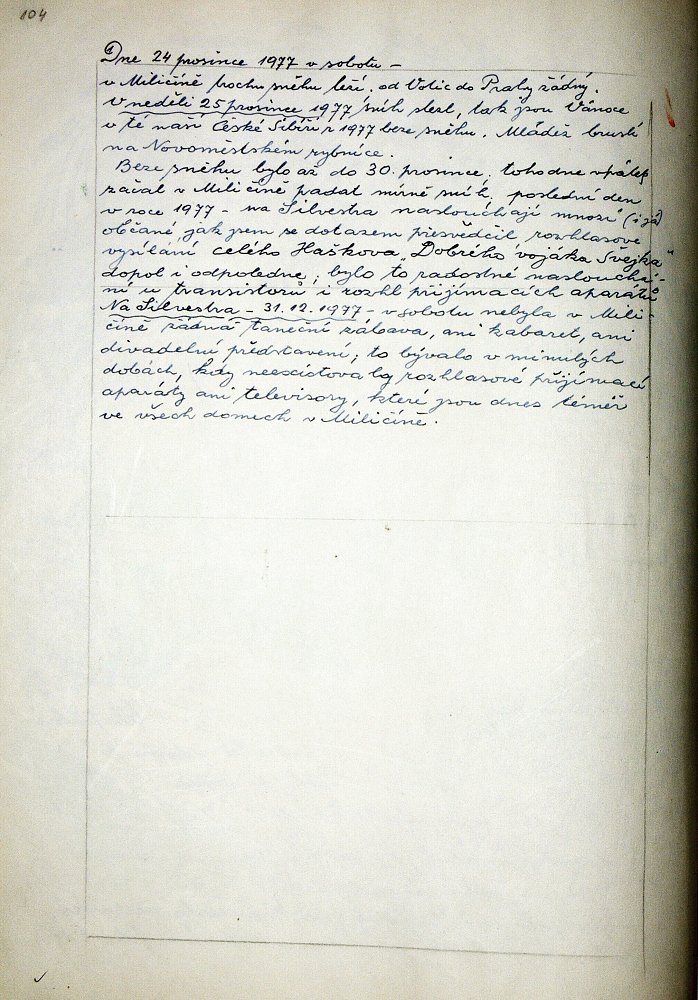 104
Dne 24 prosince 1977 v sobotu –
v Miličíně trochu sněhu leží, od Votic do Prahy žádný.
V neděli 25 prosince 1977 sníh slezl, tak jsou Vánoce
v té naší České Sibiři r 1977 beze sněhu. Mládež bruslí
na Novoměstském rybníce.
Beze sněhu bylo až do 30. prosince, toho dne v pátek
začal v Miličíně padat mírně sníh, poslední den
v roce 1977 – na Silvestra naslouchají mnozí (i já)
občané jak jsem se dotazem přesvědčil, rozhlasové
vysílání celého Haškova „Dobrého vojáka Švejka"
dopol i odpoledne; bylo to radostné naslouchá-
ní u transistorů i rozhl přijímacích aparátů
Na Silvestra – 31.12.1977 – v sobotu nebyla v Mili-
číně žádná taneční zábava, ani kabaret, ani
divadelní představení; to bývalo v minulých
dobách, kdy neexistovaly rozhlasové přijímací
aparáty ani televisory, které jsou dnes téměř
ve všech domech v Miličíně.